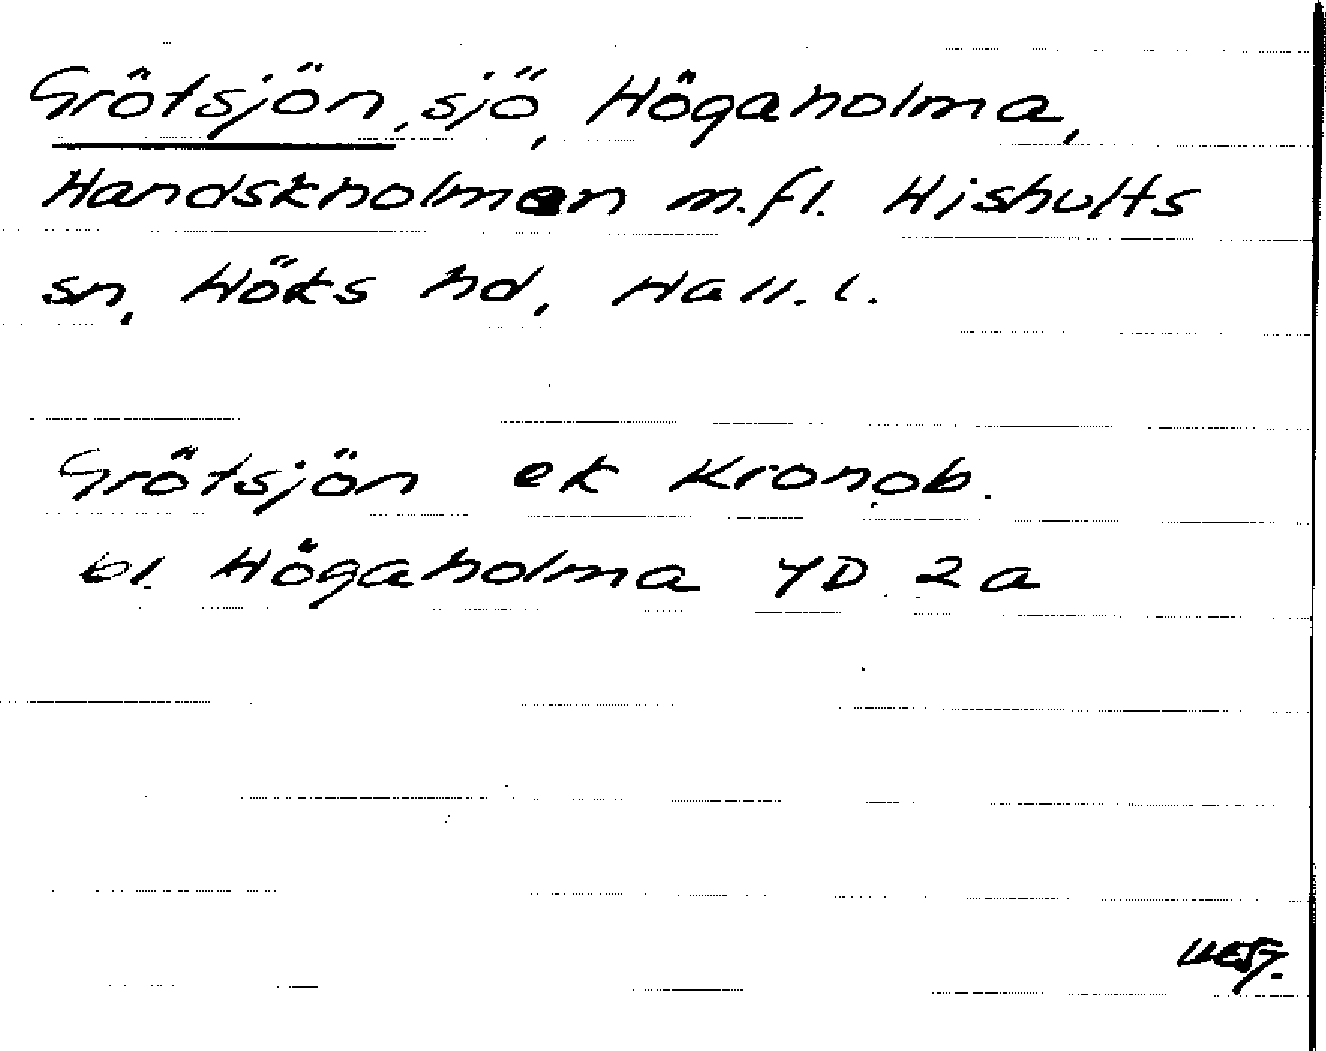 Grötsjön, sjö, Högaholma,
Handskholmen m.fl. Hishults
sn, Höks hd, Hall. l.
Grötsjön ek Kronob.
bl. Högaholma YD 2a